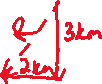 3km
2km